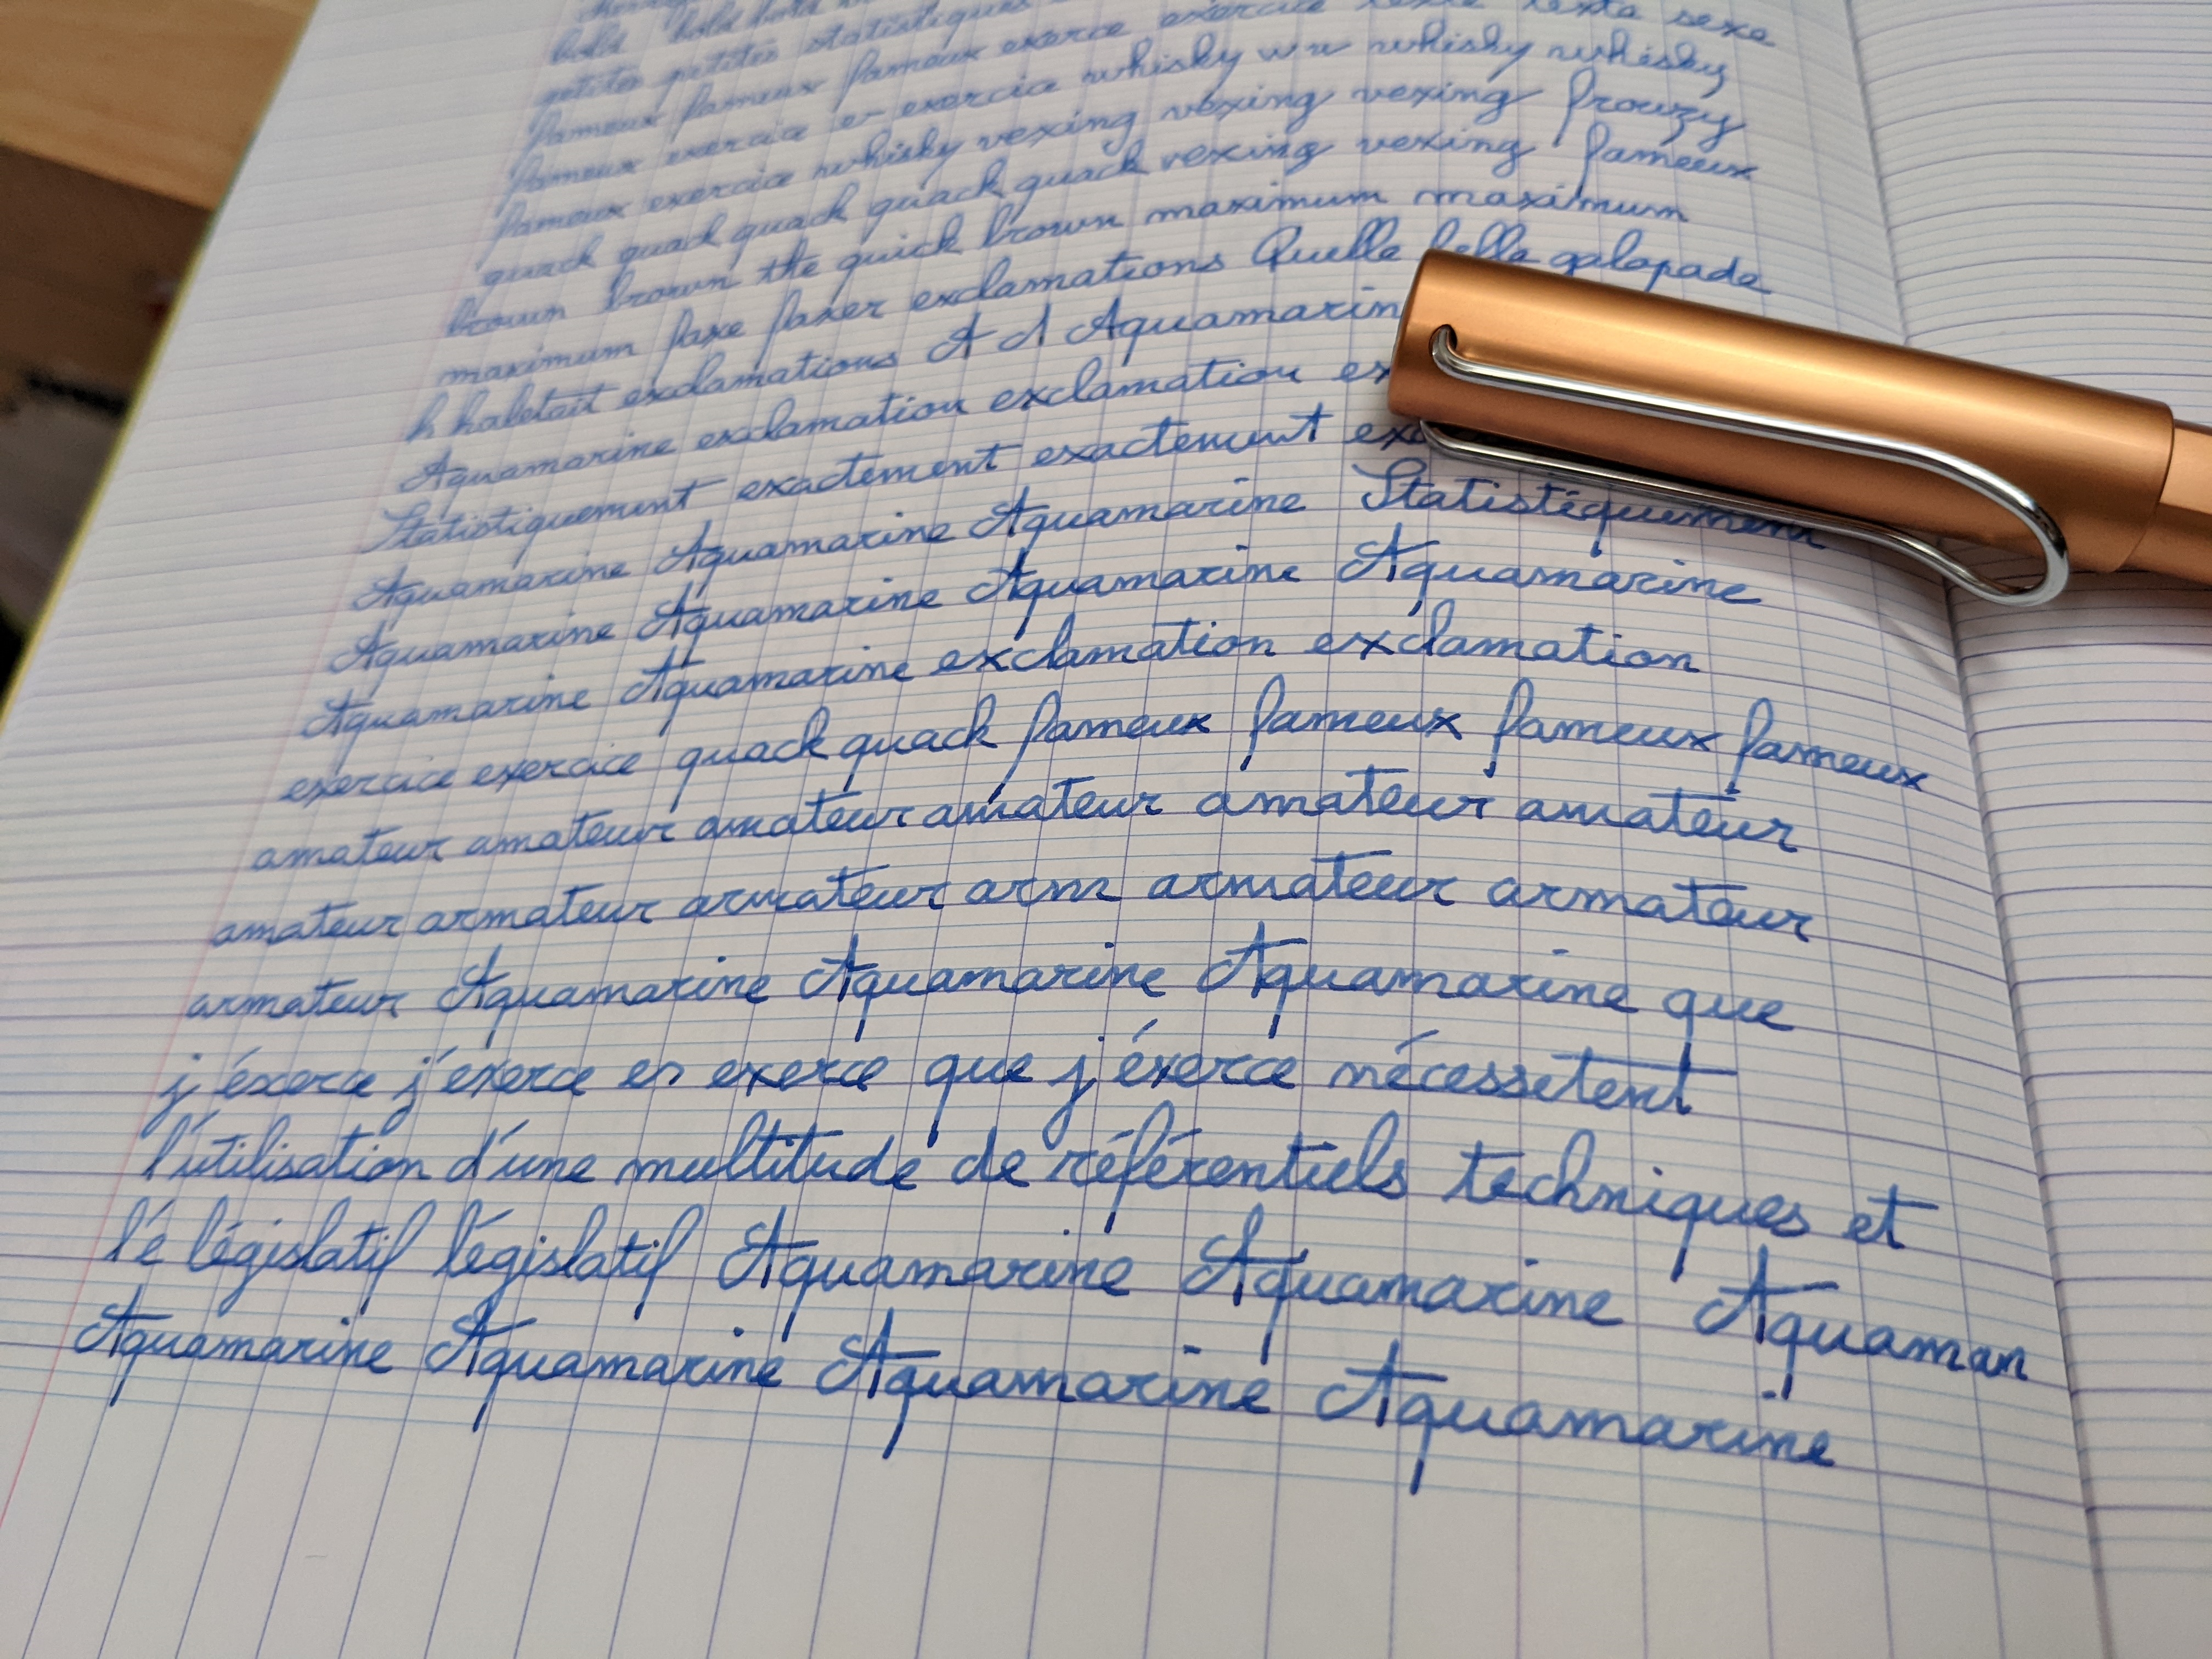 bold bold bold
petites petites statistiques
fameux fameux fameux exerce exercice texte texte sexe
fameux exercice er exercice whisky wx whisky whisky
fameux exercice whisky vexing vexing vexing frowzy
quack quack quack quack quack vexing vexing fameux
brown brown the quick brown maximum maximum
maximum faxe faxer exclamations Quelle belle galopade
h haletait exclamations A A Aquamarin
Aquamarine exclamation exclamation ex
Statistiquement exactement exactement exa
Aquamarine Aquamarine Aquamarine Statistiquement
Aquamarine Aquamarine Aquamarine Aquamarine
Aquamarine Aquamarine exclamation exclamation
exercice exercice quack quack fameux fameux fameux fameux
amateur amateur amateur amateur amateur amateur
amateur armateur armateur arm armateur armateur
armateur Aquamarine Aquamarine Aquamarine que
j'éxerce j'exerce er exerce que j'éxerce nécessetent
l'utilisation d'une multitude de référentiels techniques et
l'é législatif législatif Aquamarine Aquamarine Aquaman
Aquamarine Aquamarine Aquamarine Aquamarine